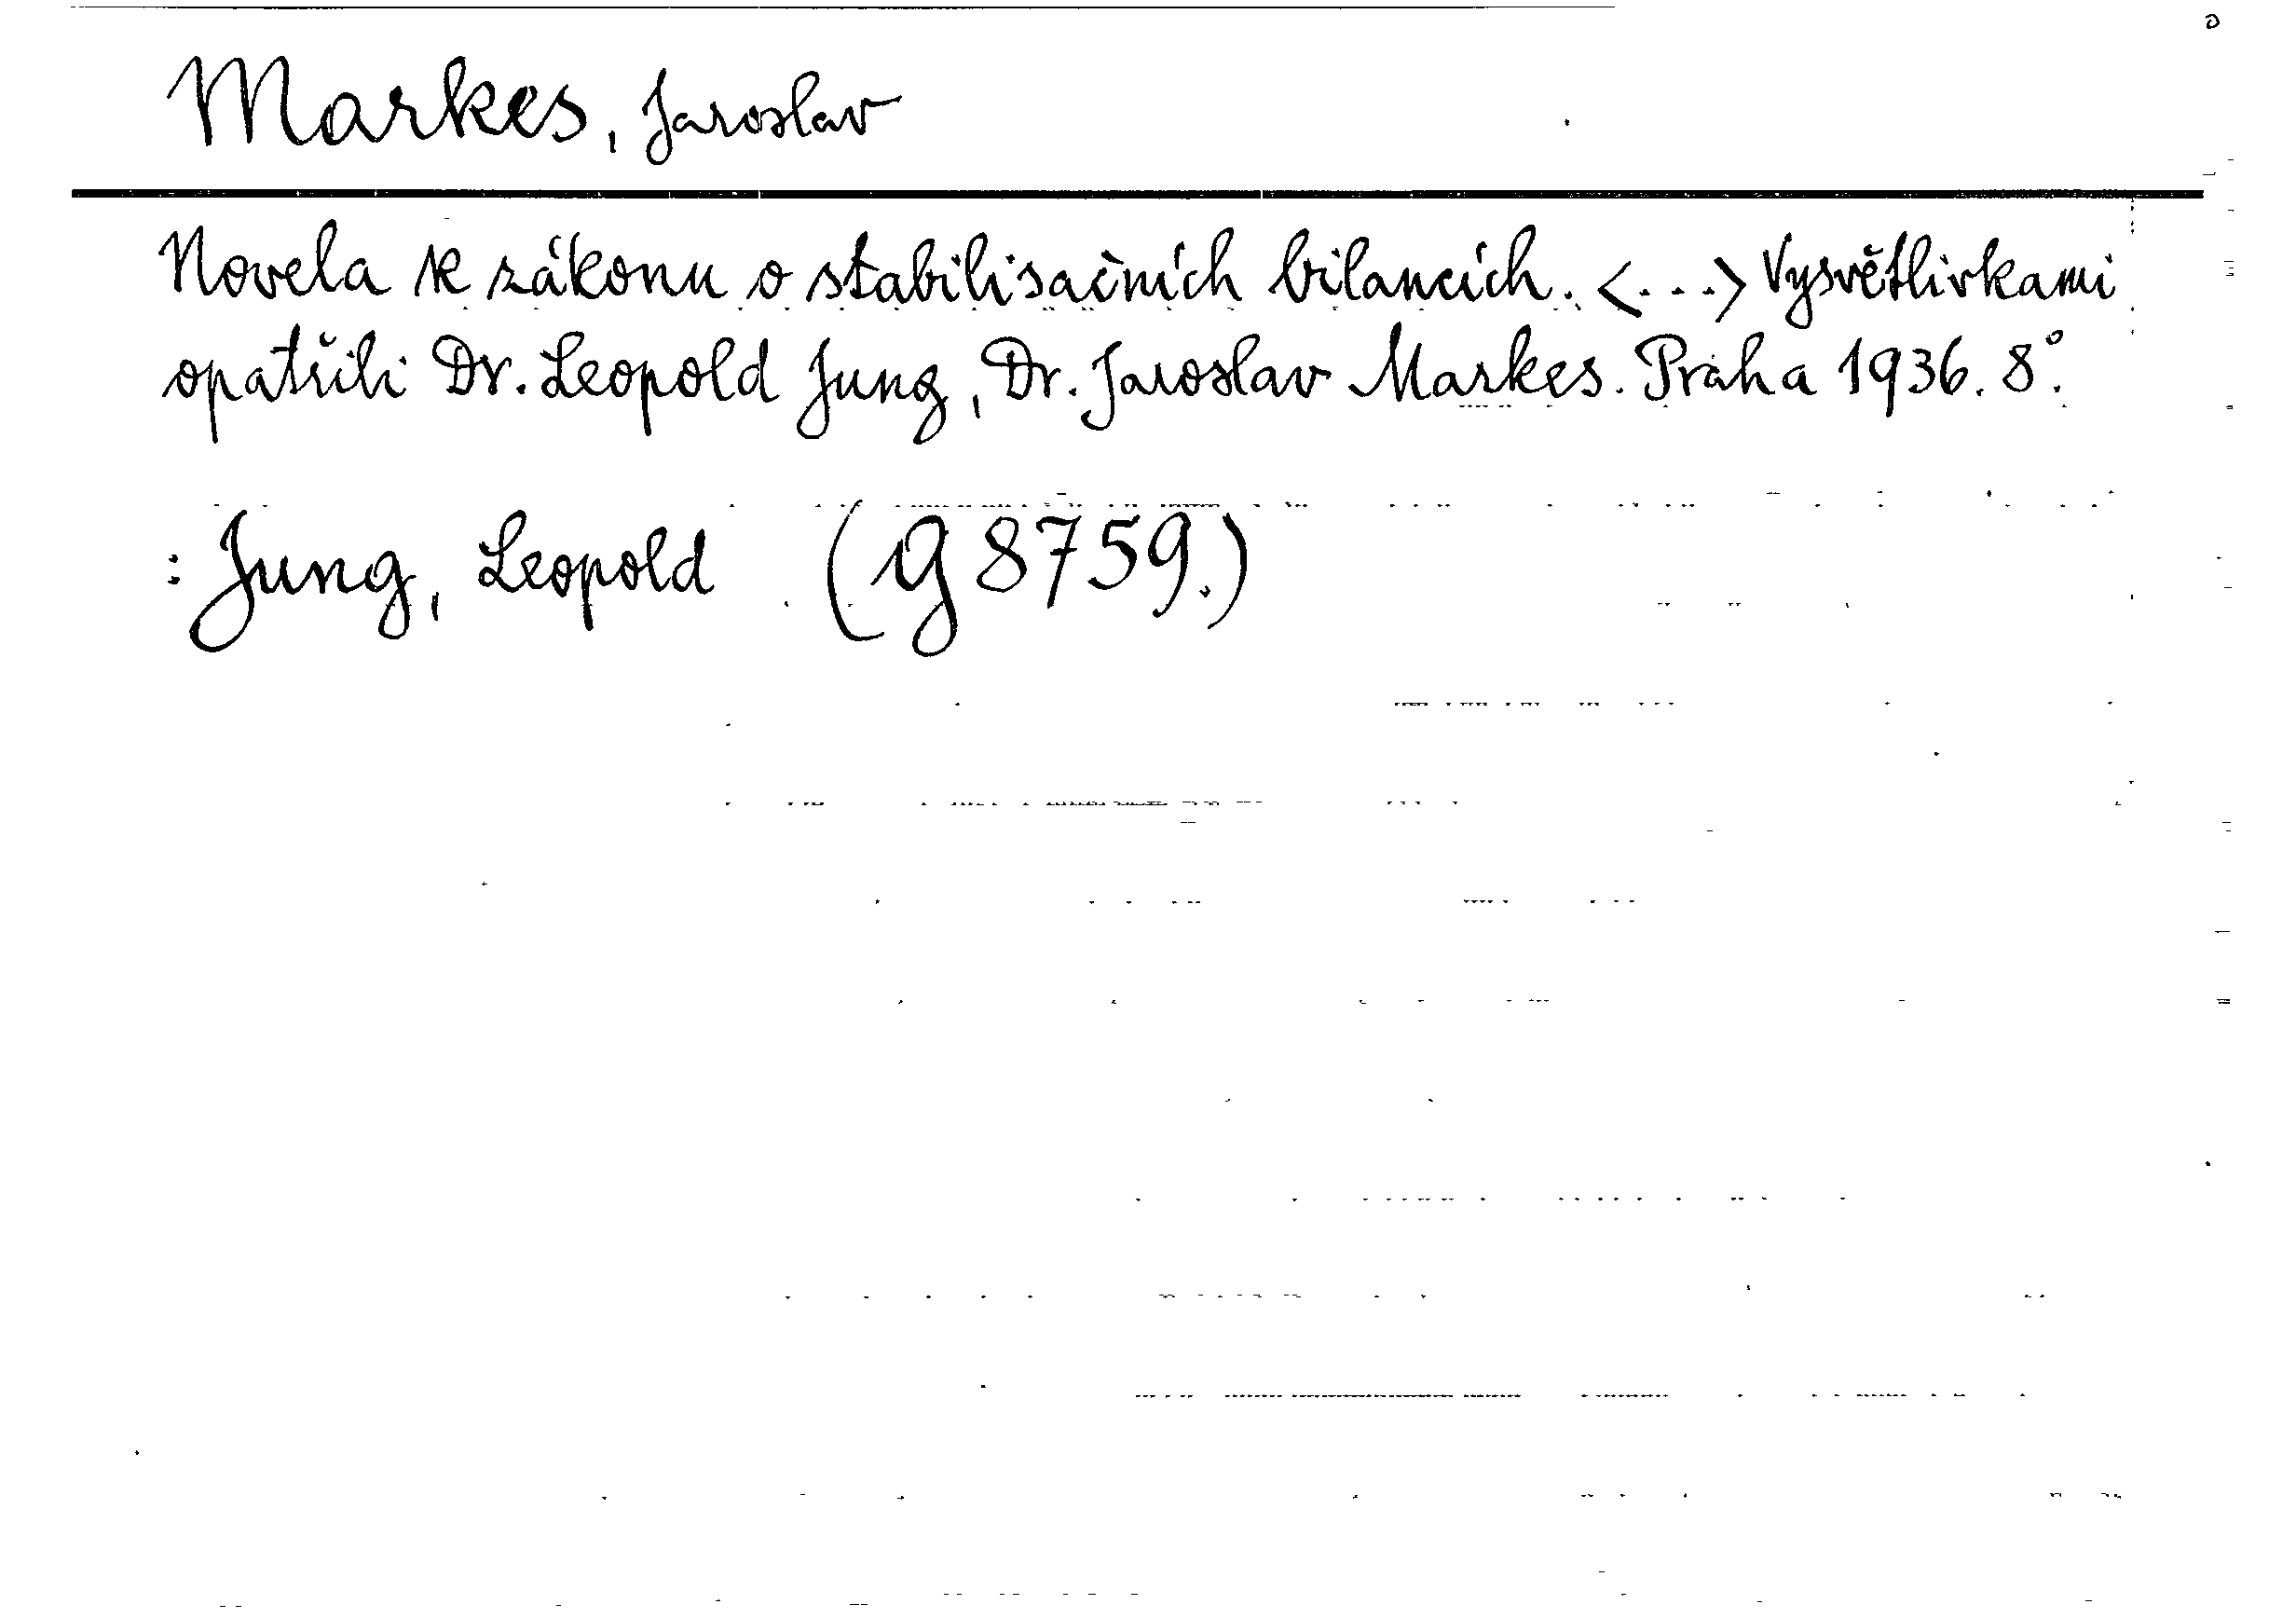 Markes, Jaroslav
Novela k zákonu o stabilisačních bilancích. <...> Vysvětlivkami
opatřili Dr. Leopold Jung, Dr. Jaroslav Markes. Praha 1936. 8°.
: Jung, Leopold (g 8759.)